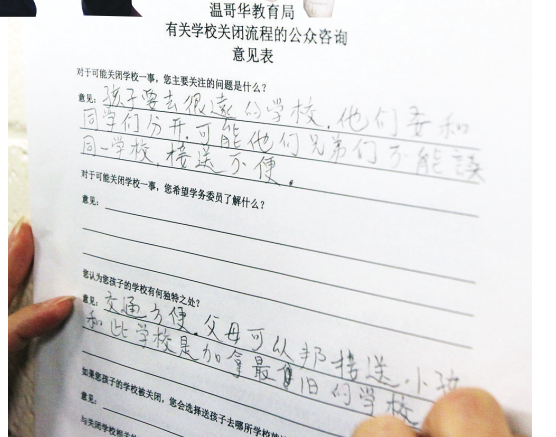 温哥华教育局
有关学校关闭流程的公众咨询
意见表
对于可能关闭学校一事，您主要关注的问题是什么？
意见：孩子要去很遠的学校，他们要和
同学们分开，可能他们兄弟们不能读
同一学校，接送不便。
对于可能关闭学校一事，您希望学务委员了解什么？
意见：
您认为您孩子的学校有何独特之处？
意见：交通方便，父母可以帮接送小孩
和此学校是加拿最旧的学校
如果您孩子的学校被关闭，您会选择送孩子去哪所学校
意见：
与关闭学校相关